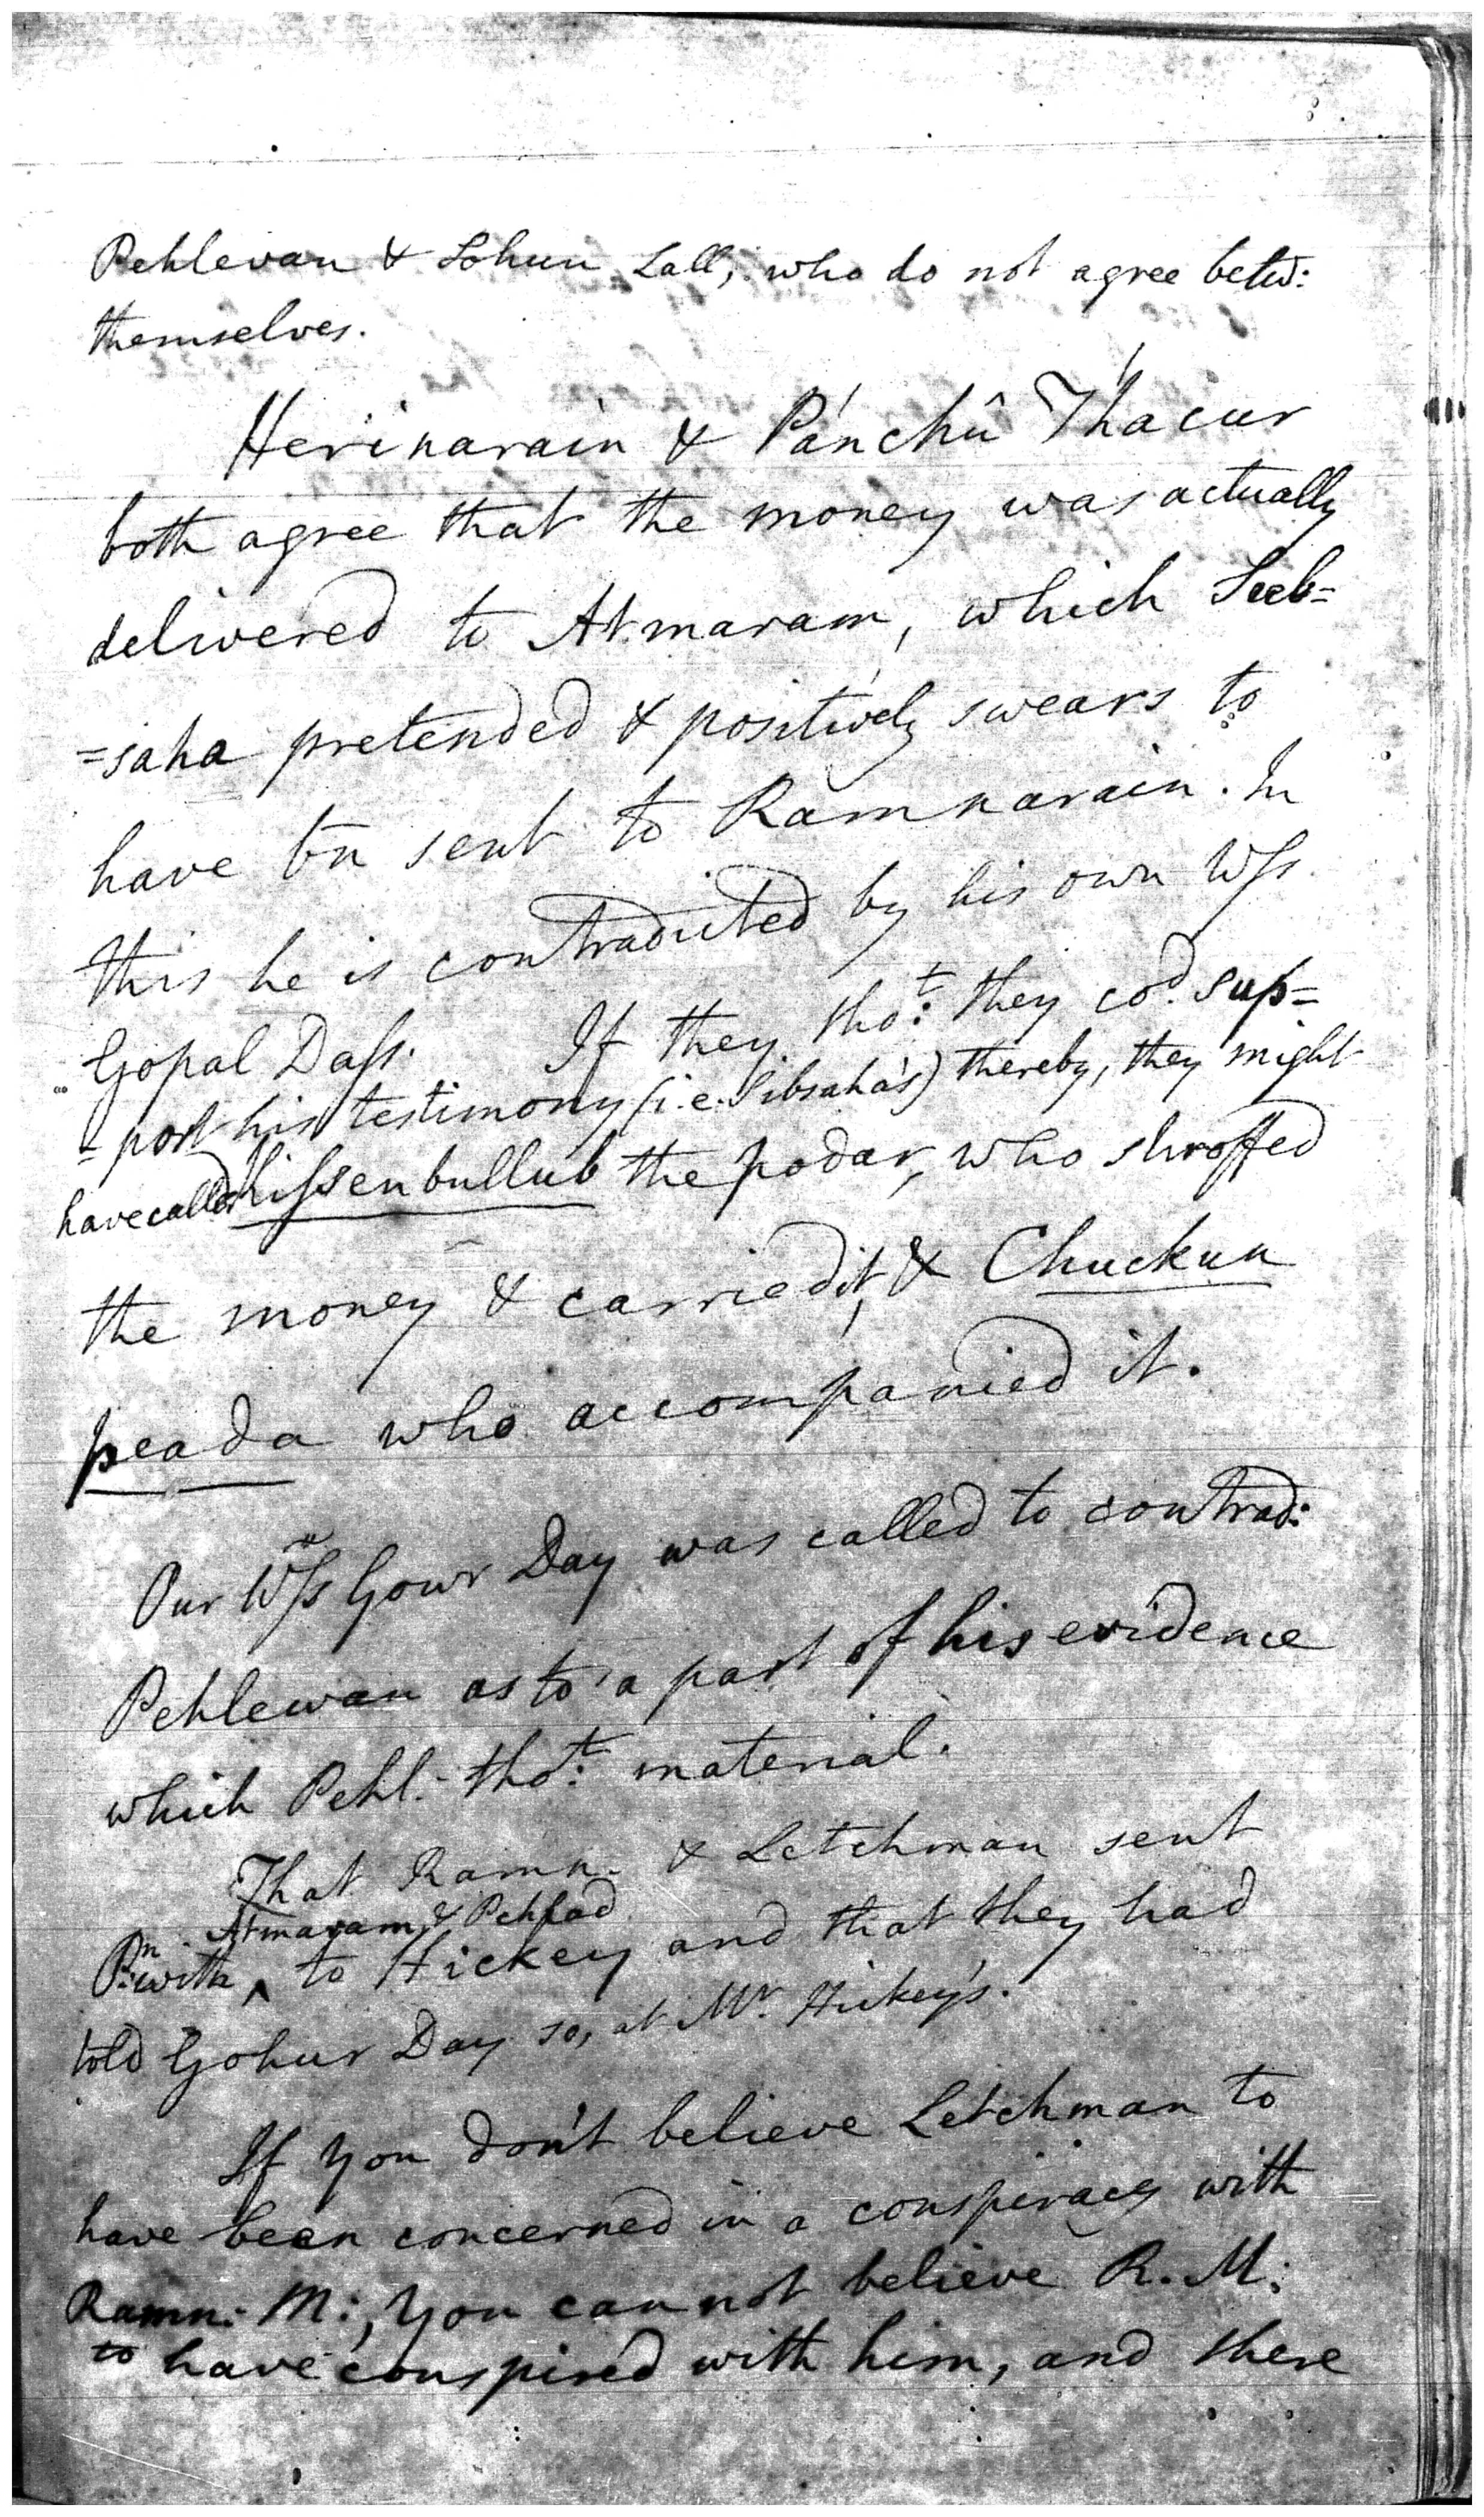 Pehlevan & Sohun Lall, who do not agree betw:
themselves.
Herinarain & Pánchû Thacur
both agree that the money was actually
delivered to Atmaram, which Seeb=
=saha pretended & positively swears to
have bn sent to Ramnarain. In
this he is contradicted by his own Wss.
Gopal Dass. If they tho:t they cod. sup=
=port his testimony (i.e. Sibsaha's) thereby, they might
have called Kissenbullub the podar, who shroffed
the money & carried it, & Chuckun
peada who accompanied it.
Our Wss Gowr Day was called to contrad:
Pehlewan as to a part of his evidence
which Pehl: tho:t material.
That Ramn. & Letchman sent
Atmaram & Pehlad
P:n with ^ to Hickey and that they had
told Gohur Day so, at Mr. Hickey's.
If you don't believe Letchman to
have been concerned in a conspiracy with
Ramn: M:, you cannot believe R. M:
to have conspired with him, and there